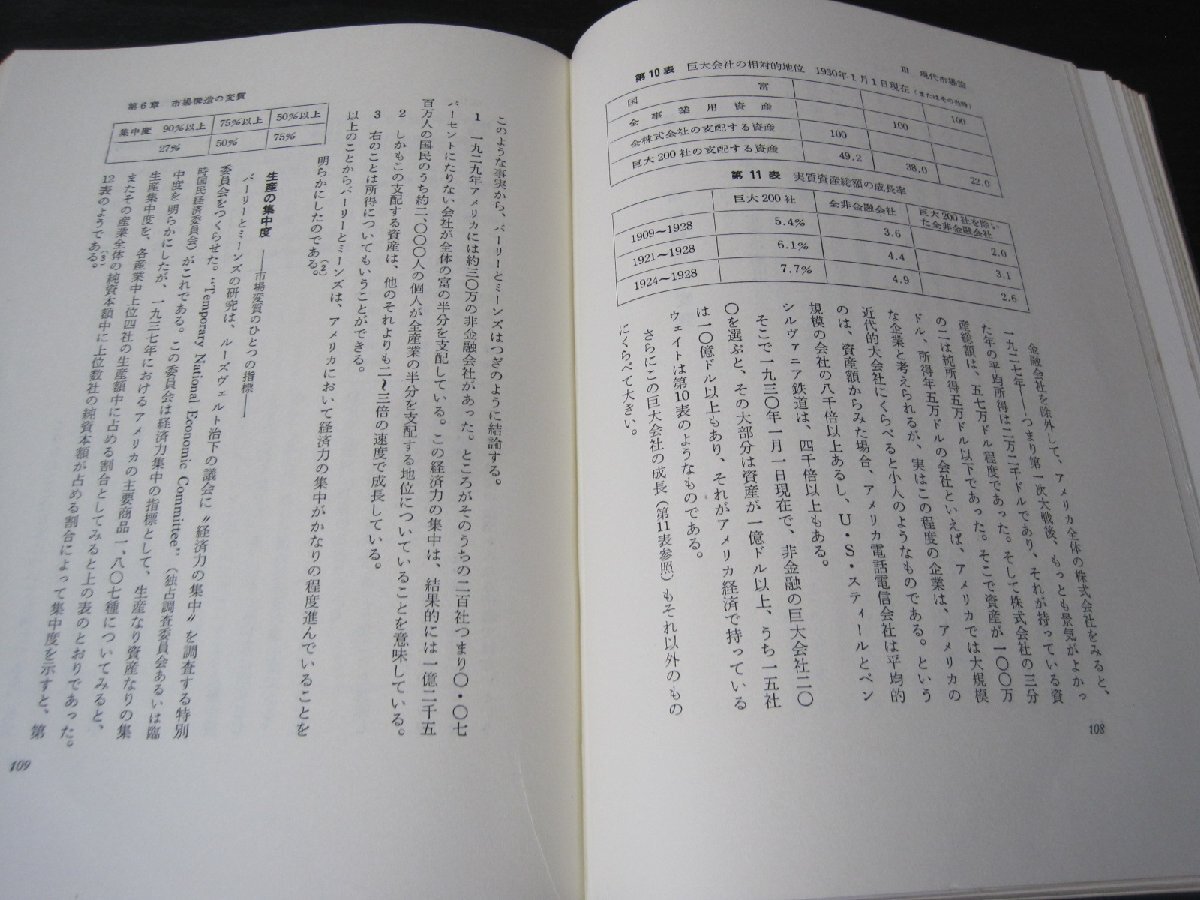 III 現代市場論
第10表 巨大会社の相対的地位 1930年1月1日現在(またはその当時)
国富 100
全事業用資産 100
全株式会社の支配する資産 100
巨大200社の支配する資産 49.2 38.0 22.0
第11表 実質資産総額の成長率
巨大200社 全非金融会社 巨大200社を除いた全非金融会社
1909~1928 5.4% 3.6 2.0
1921~1928 6.1% 4.4 3.1
1924~1928 7.7% 4.9 2.6
金融会社を除外して、アメリカ全体の株式会社をみると、
一九二七年——つまり第一次大戦後、もっとも景気がよかっ
た年の平均所得は二万二千ドルであり、それが持っている資
産総額は、五七万ドル程度であった。そして株式会社の三分
の二は純所得五万ドル以下であった。そこで資産が一〇〇万
ドル、所得年五万ドルの会社といえば、アメリカでは大規模
な企業と考えられるが、実はこの程度の企業は、アメリカの
近代的大会社にくらべると小人のようなものである。という
のは、資産額からみた場合、アメリカ電話電信会社は平均的
規模の会社の八千倍以上あるし、U・S・スティールとペン
シルヴァニア鉄道は、四千倍以上もある。
そこで一九三〇年一月一日現在で、非金融の巨大会社二〇
〇を選ぶと、その大部分は資産が一億ドル以上、うち一五社
は一〇億ドル以上もあり、それがアメリカ経済で持っている
ウェイトは第10表のようなものである。
さらにこの巨大会社の成長(第11表参照)もそれ以外のもの
にくらべて大きい。
108
第6章 市場構造の変質
集中度 90%以上 75%以上 50%以上
27% 50% 75%
このような事実から、バーリーとミーンズはつぎのように結論する。
1 一九二九年アメリカには約三〇万の非金融会社があった。ところがそのうちの二百社つまり〇・〇七
パーセントにたりない会社が全体の富の半分を支配している。この経済力の集中は、結果的には一億二千五
百万人の国民のうち約二、〇〇〇人の個人が全産業の半分を支配する地位についていることを意味している。
2 しかもこの支配する資産は、他のそれよりも二~三倍の速度で成長している。
3 右のことは所得についてもいうことができる。
以上のことからバーリーとミーンズは、アメリカにおいて経済力の集中がかなりの程度進んでいることを
明らかにしたのである。(2)
生産の集中度 ——市場変質のひとつの指標——
バーリーとミーンズの研究は、ルーズヴェルト治下の議会に〝経済力の集中〟を調査する特別
委員会をつくらせた。“Temporary National Economic Committee”(独占調査委員会あるいは臨
時国民経済委員会)がこれである。この委員会は経済力集中の指標として、生産なり資産なりの集
中度を明らかにしたが、一九三七年におけるアメリカの主要商品一、八〇七種についてみると、
生産集中度を、各産業中上位四社の生産額中に占める割合としてみると上の表のとおりであった。
またその産業全体の純資本額中に上位数社の純資本額が占める割合によって集中度を示すと、第
12表のようである。(3)
109